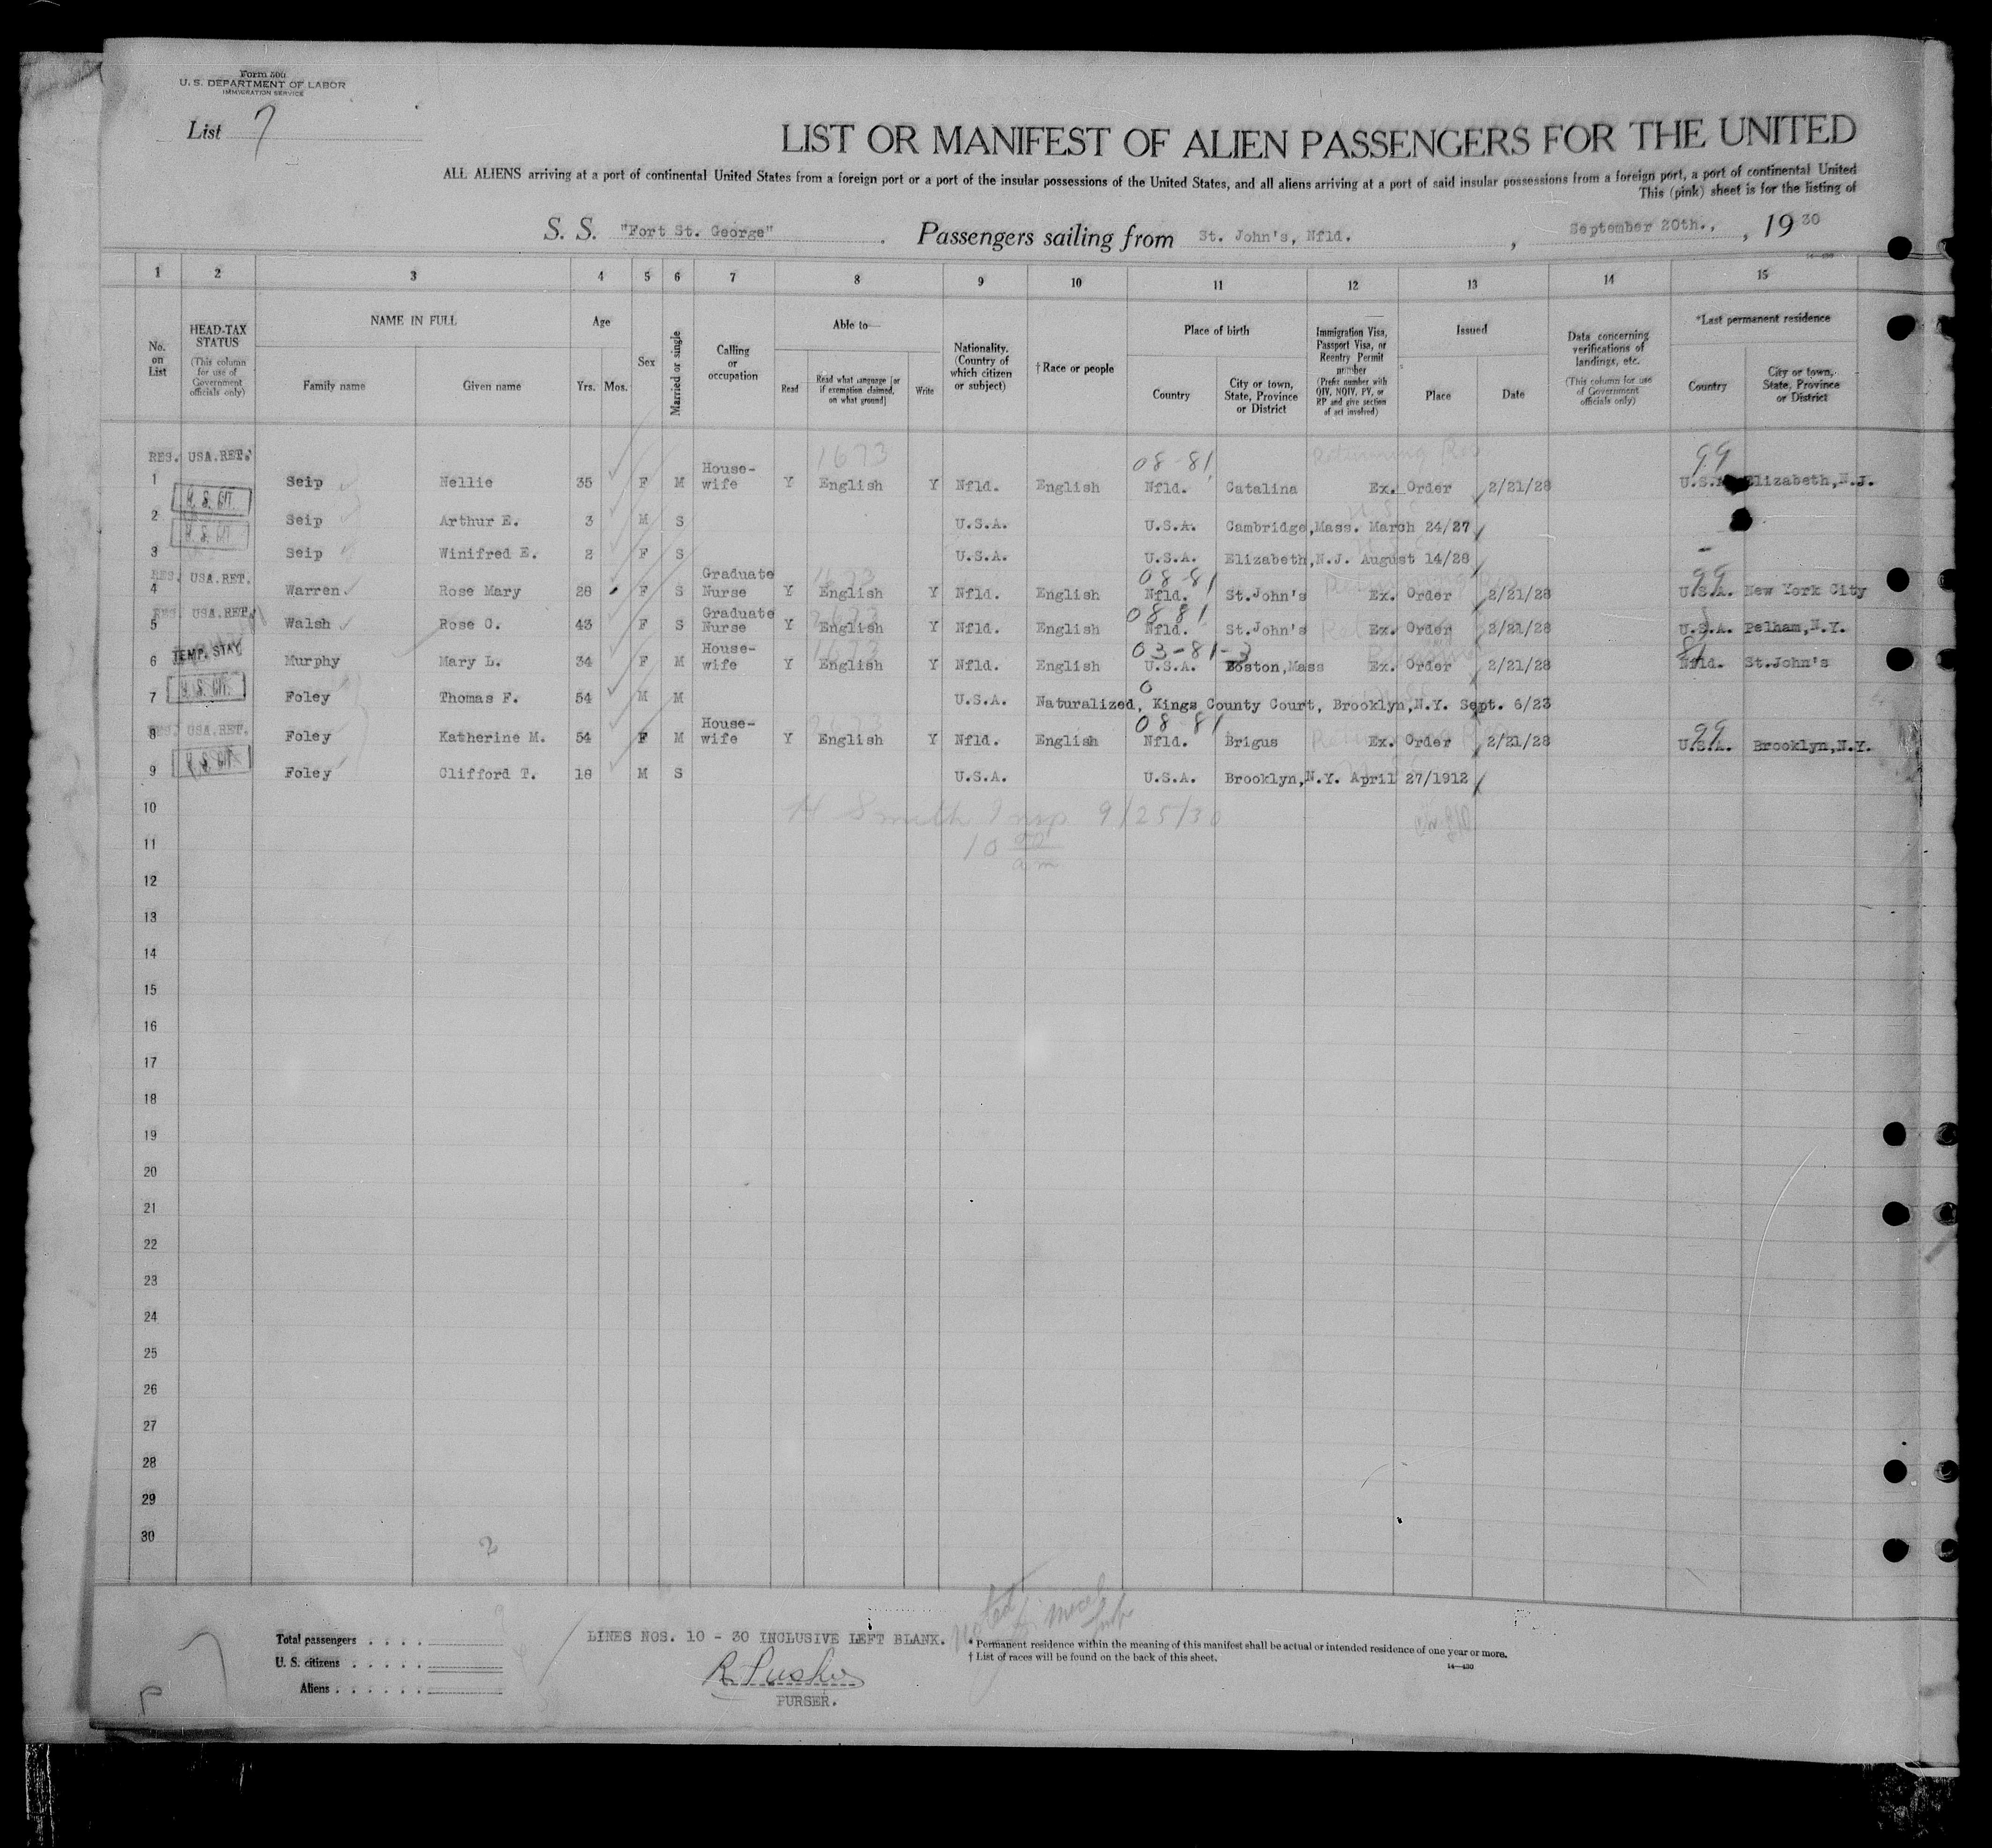 Form 500
U. S. DEPARTMENT OF LABOR
IMMIGRATION SERVICE
List 7
LIST OR MANIFEST OF ALIEN PASSENGERS FOR THE UNITED
ALL ALIENS arriving at a port of continental United States from a foreign port or a port of the insular possessions of the United States, and all aliens arriving at a port of said insular possessions from a foreign port, a port of continental United
This (pink) sheet is for the listing of
S. S. "Fort St. George" . Passengers sailing from St. John's, Nfld. , September 20th., , 19 30
14—430
1 2 3 4 5 6 7 8 9 10 11 12 13 14 15
No. on List
HEAD-TAX STATUS (This column for use of Government officials only)
NAME IN FULL
Family name Given name
Age
Yrs. Mos.
Sex
Married or single
Calling or occupation
Able to—
Read
Read what language [or if exemption claimed, on what ground]
Write
Nationality. (Country of which citizen or subject)
†Race or people
Place of birth
Country
City or town, State, Province or District
Immigration Visa, Passport Visa, or Reentry Permit number (Prefix number with QIV, NQIV, PV, or RP and give section of act involved)
Issued
Place Date
Data concerning verifications of landings, etc. (This column for use of Government officials only)
*Last permanent residence
Country
City or town, State, Province or District
RES. USA.RET. 1673 08-81 Returning Res. 99
1 Seip Nellie 35 F M House-wife Y English Y Nfld. English Nfld. Catalina Ex. Order 2/21/28 U.S.A. Elizabeth,N.J.
U. S. CIT.
2 Seip Arthur E. 3 M S U.S.A. U.S.A. Cambridge,Mass. March 24/27
U. S. CIT.
3 Seip Winifred E. 2 F S U.S.A. U.S.A. Elizabeth,N.J. August 14/28
RES. USA.RET. 08-81 99
4 Warren Rose Mary 28 F S Graduate Nurse Y English Y Nfld. English Nfld. St.John's Ex. Order 2/21/28 U.S.A. New York City
RES. USA.RET. 08 81
5 Walsh Rose C. 43 F S Graduate Nurse Y English Y Nfld. English Nfld. St.John's Ex. Order 2/21/28 U.S.A. Pelham,N.Y.
TEMP. STAY 03-81-3 81
6 Murphy Mary L. 34 F M House-wife Y English Y Nfld. English U.S.A. Boston,Mass Ex. Order 2/21/28 Nfld. St.John's
U. S. CIT.
7 Foley Thomas F. 54 M M U.S.A. Naturalized, Kings County Court, Brooklyn,N.Y. Sept. 6/23
RES. USA.RET. 08-81 99
8 Foley Katherine M. 54 F M House-wife Y English Y Nfld. English Nfld. Brigus Ex. Order 2/21/28 U.S.A. Brooklyn,N.Y.
U. S. CIT.
9 Foley Clifford T. 18 M S U.S.A. U.S.A. Brooklyn,N.Y. April 27/1912
10 H Smith Insp 9/25/30
11 10 00 am
12
13
14
15
16
17
18
19
20
21
22
23
24
25
26
27
28
29
30
2
Total passengers . . . .
U. S. citizens . . . . .
Aliens . . . . . .
LINES NOS. 10 - 30 INCLUSIVE LEFT BLANK.
PURSER.
* Permanent residence within the meaning of this manifest shall be actual or intended residence of one year or more.
† List of races will be found on the back of this sheet.
14—430